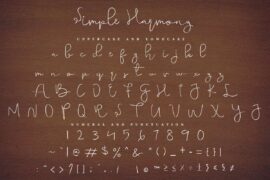 Simple Harmony
UPPERCASE AND LOWERCASE
a b c d e f g h i j k l
m n o p q r s t u v w x y z
A B C D E F G H I J K L
M N O P Q R S T U V W X Y Z
NUMERAL AND PUNCTUATION
1 2 3 4 5 6 7 8 9 0
~ ` ! @ # $ % ^ & * ( ) _ + - = { } [ ]